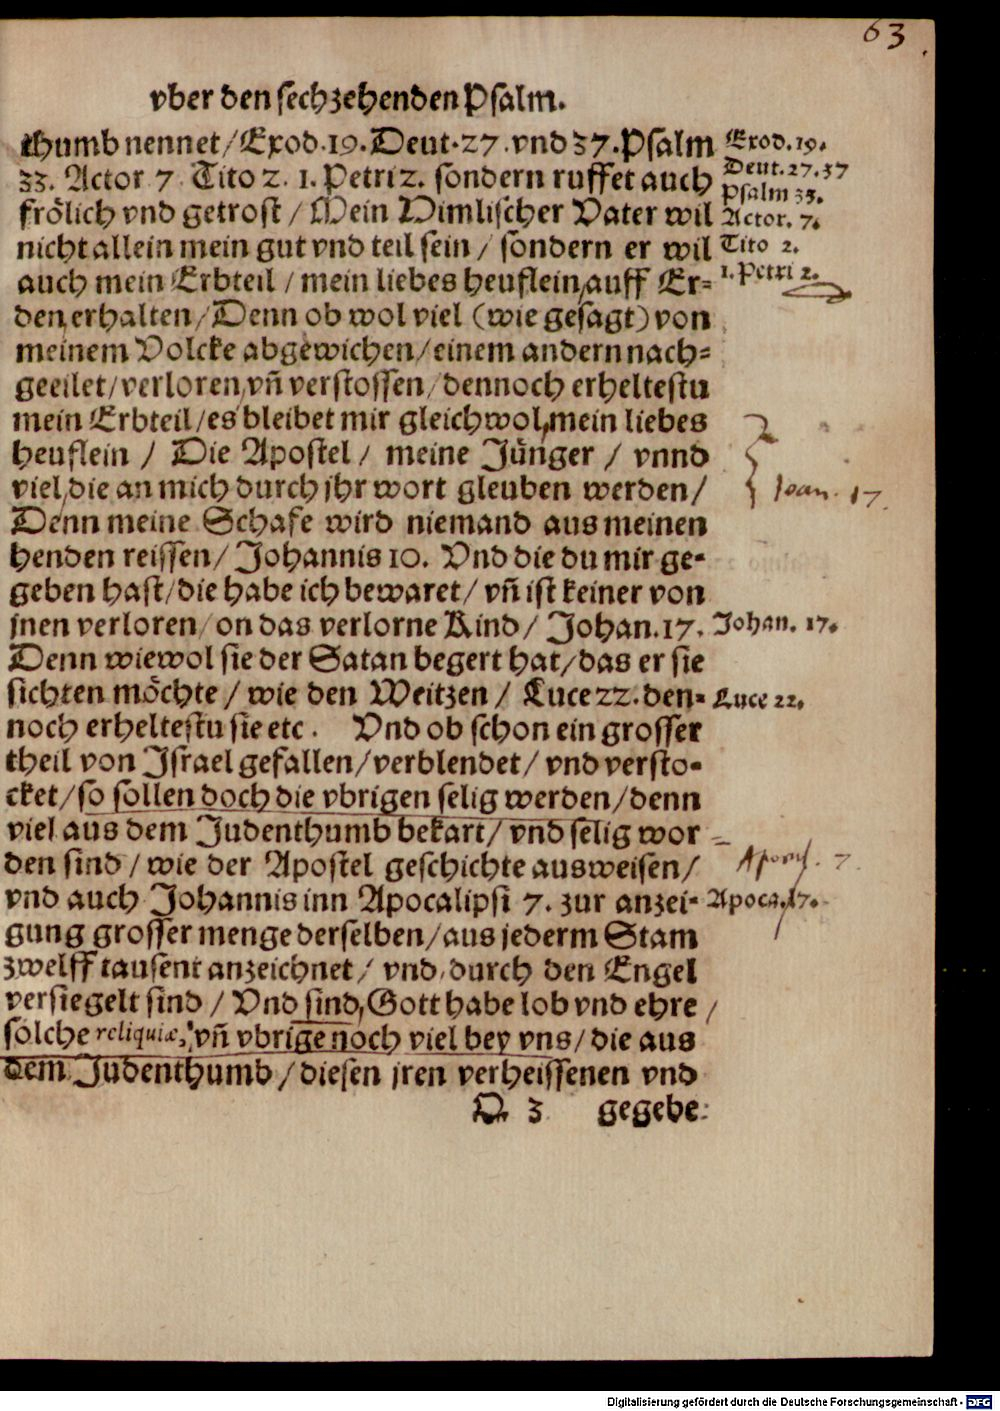 63
vber den sechzehenden Psalm.
thumb nennet/Exod.19.Deut.27.vnd 37.Psalm
33. Actor 7. Tito 2. 1. Petri 2. sondern ruffet auch
frölich vnd getrost / Mein Himlischer Vater wil
nicht allein mein gut vnd teil sein / sondern er wil
auch mein Erbteil / mein liebes heuflein auff Er⸗
den erhalten/Denn ob wol viel (wie gesagt) von
meinem Volcke abgewichen/einem andern nach⸗
geeilet/verloren vñ verstossen/dennoch erheltestu
mein Erbteil/es bleibet mir gleichwol mein liebes
heuflein / Die Apostel / meine Jünger / vnnd
viel die an mich durch jhr wort gleuben werden/
Denn meine Schafe wird niemand aus meinen
henden reissen/ Johannis 10. Vnd die du mir ge⸗
geben hast/die habe ich bewaret/ vñ ist keiner von
jnen verloren/on das verlorne Kind/ Johan.17.
Denn wiewol sie der Satan begert hat/das er sie
sichten möchte / wie den Weitzen / Luce 22. den⸗
noch erheltestu sie etc. Vnd ob schon ein grosser
theil von Israel gefallen/verblendet/ vnd versto⸗
cket/so sollen doch die vbrigen selig werden/denn
viel aus dem Judenthumb bekart/ vnd selig wor
den sind / wie der Apostel geschichte ausweisen/
vnd auch Johannis inn Apocalipsi 7. zur anzei⸗
gung grosser menge derselben/aus jederm Stam
zwelff tausent anzeichnet/ vnd durch den Engel
versiegelt sind / Vnd sind, Gott habe lob vnd ehre /
solche reliquiæ, vñ vbrige noch viel bey vns/die aus
dem Judenthumb /diesen jren verheissenen vnd
Q 3 gegebe⸗
Exod.19.
Deut.27.37
Psalm 33.
Actor. 7.
Tito 2.
1. Petri 2.
Ioan. 17.
Johan. 17.
Luce 22.
7.
Apoca.17.
Digitalisierung gefördert durch die Deutsche Forschungsgemeinschaft - DFG